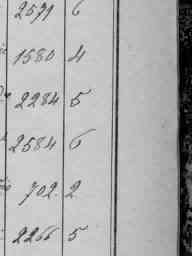 2571 6
1580 4
2284 5
2584 6
702 2
2266 5